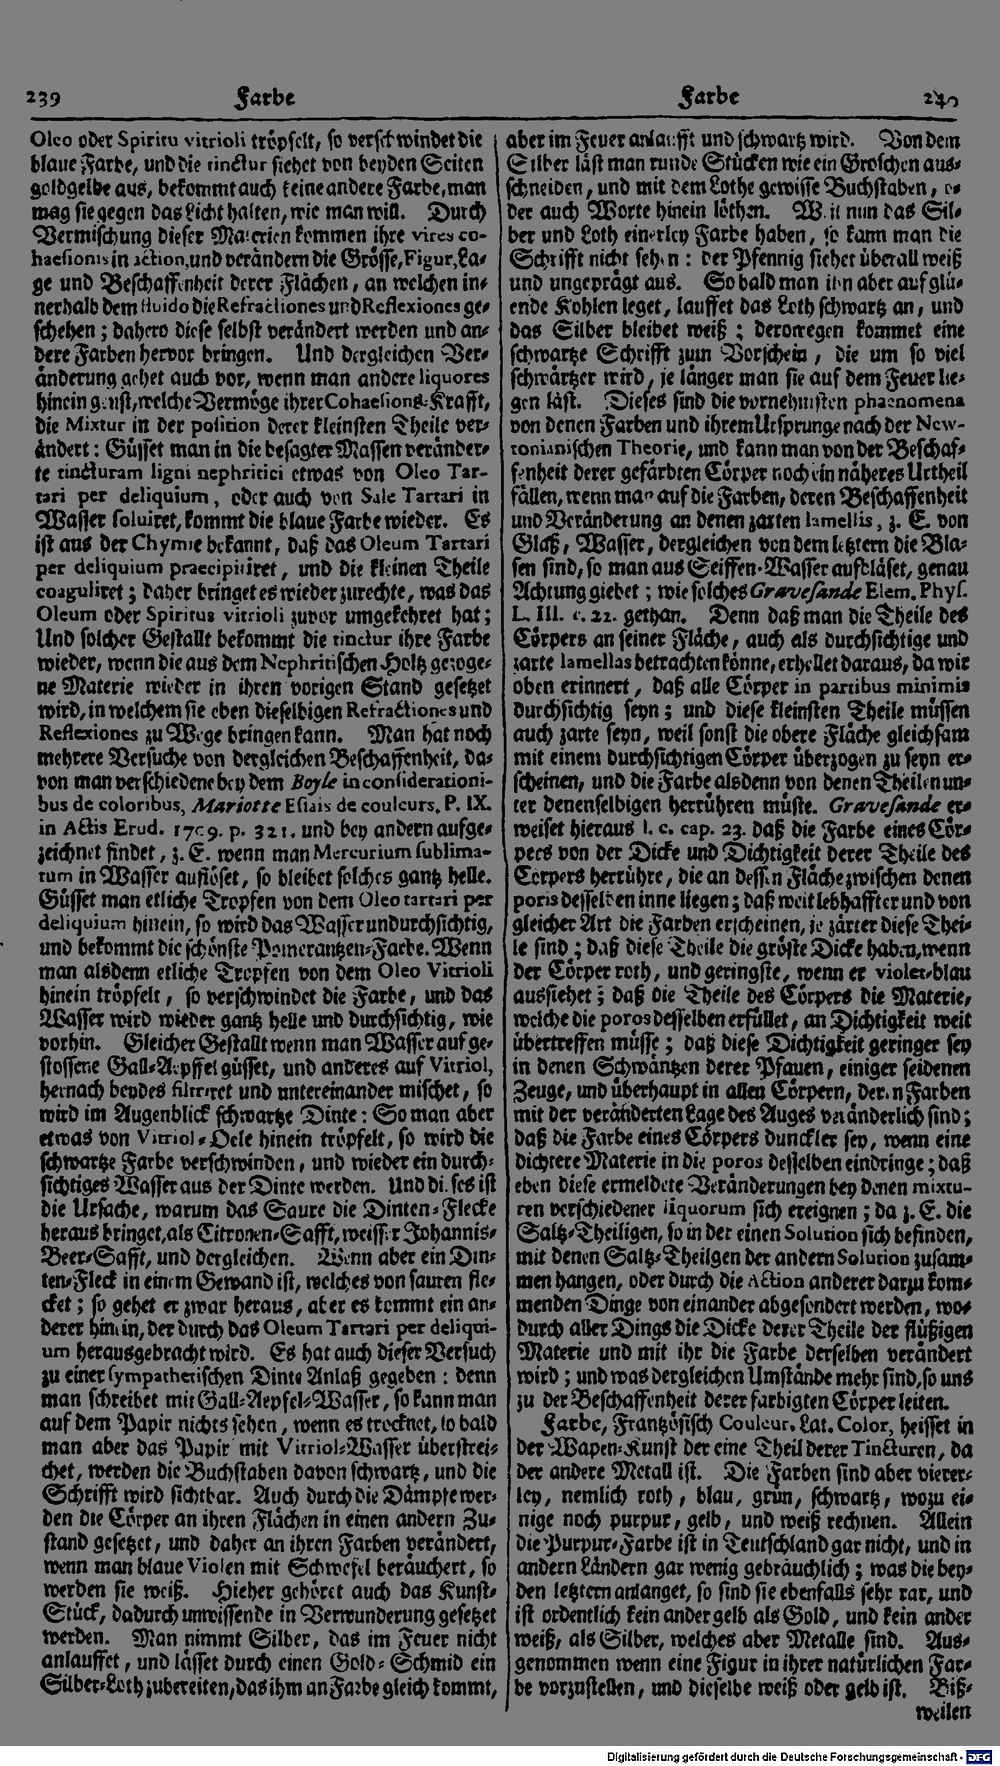 239 Farbe
Farbe 240
Oleo oder Spiritu vitrioli tröpfelt, so verschwindet die
blaue Farbe, und die tinctur siehet von beyden Seiten
goldgelbe aus, bekommt auch keine andere Farbe, man
mag sie gegen das Licht halten, wie man will. Durch
Vermischung dieser Materien kommen ihre vires co-
haesionis in action, und verändern die Grösse, Figur, La-
ge und Beschaffenheit derer Flächen, an welchen in-
nerhalb dem fluido die Refractiones und Reflexiones ge-
schehen; dahero diese selbst verändert werden und an-
dere Farben hervor bringen. Und dergleichen Ver-
änderung gehet auch vor, wenn man andere liquores
hinein geust, welche Vermöge ihrer Cohaesions-Krafft,
die Mixtur in der position derer kleinsten Theile ver-
ändert: Güsset man in die besagter Massen veränder-
te tincturam ligni nephritici etwas von Oleo Tar-
tari per deliquium, oder auch von Sale Tartari in
Wasser solviret, kommt die blaue Farbe wieder. Es
ist aus der Chymie bekannt, daß das Oleum Tartari
per deliquium praecipitiret, und die kleinen Theile
coaguliret; daher bringet es wieder zurechte, was das
Oleum oder Spiritus vitrioli zuvor umgekehret hat;
Und solcher Gestallt bekommt die tinctur ihre Farbe
wieder, wenn die aus dem Nephritischen Holtz gezoge-
ne Materie wieder in ihren vorigen Stand gesetzet
wird, in welchem sie eben dieselbigen Refractiones und
Reflexiones zu Wege bringen kann. Man hat noch
mehrere Versuche von dergleichen Beschaffenheit, da-
von man verschiedene bey dem Boyle in considerationi-
bus de coloribus, Mariotte Essais de couleurs, P. IX.
in Actis Erud. 1709. p. 321. und bey andern aufge-
zeichnet findet, z. E. wenn man Mercurium sublima-
tum in Wasser auflöset, so bleibet solches gantz helle.
Güsset man etliche Tropfen von dem Oleo tartari per
deliquium hinein, so wird das Wasser undurchsichtig,
und bekommt die schönste Pomerantzen-Farbe. Wenn
man alsdenn etliche Tropfen von dem Oleo Vitrioli
hinein tröpfelt, so verschwindet die Farbe, und das
Wasser wird wieder gantz helle und durchsichtig, wie
vorhin. Gleicher Gestallt wenn man Wasser auf ge-
stossene Gall-Aepffel güsset, und anderes auf Vitriol,
hernach beydes filtriret und untereinander mischet, so
wird im Augenblick schwartze Dinte: So man aber
etwas von Vitriol-Oele hinein tröpfelt, so wird die
schwartze Farbe verschwinden, und wieder ein durch-
sichtiges Wasser aus der Dinte werden. Und dieses ist
die Ursache, warum das Saure die Dinten-Flecke
heraus bringet, als Citronen-Safft, weisser Johannis-
Beer-Safft, und dergleichen. Wenn aber ein Din-
ten-Fleck in einem Gewand ist, welches von sauren fle-
cket; so gehet er zwar heraus, aber es kommt ein an-
derer hinein, der durch das Oleum Tartari per deliqui-
um herausgebracht wird. Es hat auch dieser Versuch
zu einer sympathetischen Dinte Anlaß gegeben: denn
man schreibet mit Gall-Aepfel-Wasser, so kann man
auf dem Papir nichts sehen, wenn es trocknet, so bald
man aber das Papir mit Vitriol-Wasser überstrei-
chet, werden die Buchstaben davon schwartz, und die
Schrifft wird sichtbar. Auch durch die Dämpfe wer-
den die Cörper an ihren Flächen in einen andern Zu-
stand gesetzet, und daher an ihren Farben verändert,
wenn man blaue Violen mit Schwefel beräuchert, so
werden sie weiß. Hieher gehöret auch das Kunst-
Stück, dadurch unwissende in Verwunderung gesetzet
werden. Man nimmt Silber, das im Feuer nicht
anlauffet, und lässet durch einen Gold-Schmid ein
Silber-Loth zubereiten, das ihm an Farbe gleich kommt,
aber im Feuer anlaufft und schwartz wird. Von dem
Silber läst man runde Stücken wie ein Groschen aus-
schneiden, und mit dem Lothe gewisse Buchstaben, o-
der auch Worte hinein löthen. Weil nun das Sil-
ber und Loth einerley Farbe haben, so kann man die
Schrifft nicht sehen: der Pfennig siehet überall weiß
und ungeprägt aus. So bald man ihn aber auf glü-
ende Kohlen leget, lauffet das Loth schwartz an, und
das Silber bleibet weiß; derowegen kommet eine
schwartze Schrifft zum Vorschein, die um so viel
schwärtzer wird, je länger man sie auf dem Feuer lie-
gen läst. Dieses sind die vornehmsten phaenomena
von denen Farben und ihrem Ursprunge nach der New-
tonianischen Theorie, und kann man von der Beschaf-
fenheit derer gefärbten Cörper noch ein näheres Urtheil
fällen, wenn man auf die Farben, deren Beschaffenheit
und Veränderung an denen zarten lamellis, z. E. von
Glaß, Wasser, dergleichen von dem letztern die Bla-
sen sind, so man aus Seiffen-Wasser aufbläset, genau
Achtung giebet; wie solches Gravesande Elem. Phys.
L. III. c. 22. gethan. Denn daß man die Theile des
Cörpers an seiner Fläche, auch als durchsichtige und
zarte lamellas betrachten könne, erhellet daraus, da wir
oben erinnert, daß alle Cörper in partibus minimis
durchsichtig seyn; und diese kleinsten Theile müssen
auch zarte seyn, weil sonst die obere Fläche gleichsam
mit einem durchsichtigen Cörper überzogen zu seyn er-
scheinen, und die Farbe alsdenn von denen Theilen un-
ter denenselbigen herrühren müste. Gravesande er-
weiset hieraus l. c. cap. 23. daß die Farbe eines Cör-
pers von der Dicke und Dichtigkeit derer Theile des
Cörpers herrühre, die an dessen Fläche zwischen denen
poris desselben inne liegen; daß weit lebhaffter und von
gleicher Art die Farben erscheinen, je zärter diese Thei-
le sind; daß diese Theile die gröste Dicke haben, wenn
der Cörper roth, und geringste, wenn er violet-blau
aussiehet; daß die Theile des Cörpers die Materie,
welche die poros desselben erfüllet, an Dichtigkeit weit
übertreffen müsse; daß diese Dichtigkeit geringer sey
in denen Schwäntzen derer Pfauen, einiger seidenen
Zeuge, und überhaupt in allen Cörpern, deren Farben
mit der veränderten Lage des Auges veränderlich sind;
daß die Farbe eines Cörpers dunckler sey, wenn eine
dichtere Materie in die poros desselben eindringe; daß
eben diese ermeldete Veränderungen bey denen mixtu-
ren verschiedener liquorum sich ereignen; da z. E. die
Saltz-Theiligen, so in der einen Solution sich befinden,
mit denen Saltz-Theilgen der andern Solution zusam-
men hangen, oder durch die Action anderer darzu kom-
menden Dinge von einander abgesondert werden, wo-
durch aller Dings die Dicke derer Theile der flüßigen
Materie und mit ihr die Farbe derselben verändert
wird; und was dergleichen Umstände mehr sind, so uns
zu der Beschaffenheit derer farbigten Cörper leiten.
Farbe, Frantzösisch Couleur, Lat. Color, heisset in
der Wapen-Kunst der eine Theil derer Tincturen, da
der andere Metall ist. Die Farben sind aber vierer-
ley, nemlich roth, blau, grün, schwartz, wozu ei-
nige noch purpur, gelb, und weiß rechnen. Allein
die Purpur-Farbe ist in Teutschland gar nicht, und in
andern Ländern gar wenig gebräuchlich; was die bey-
den letztern anlanget, so sind sie ebenfalls sehr rar, und
ist ordentlich kein ander gelb als Gold, und kein ander
weiß, als Silber, welches aber Metalle sind. Aus-
genommen wenn eine Figur in ihrer natürlichen Far-
be vorzustellen, und dieselbe weiß oder gelb ist. Biß-
weilen
Digitalisierung gefördert durch die Deutsche Forschungsgemeinschaft - DFG